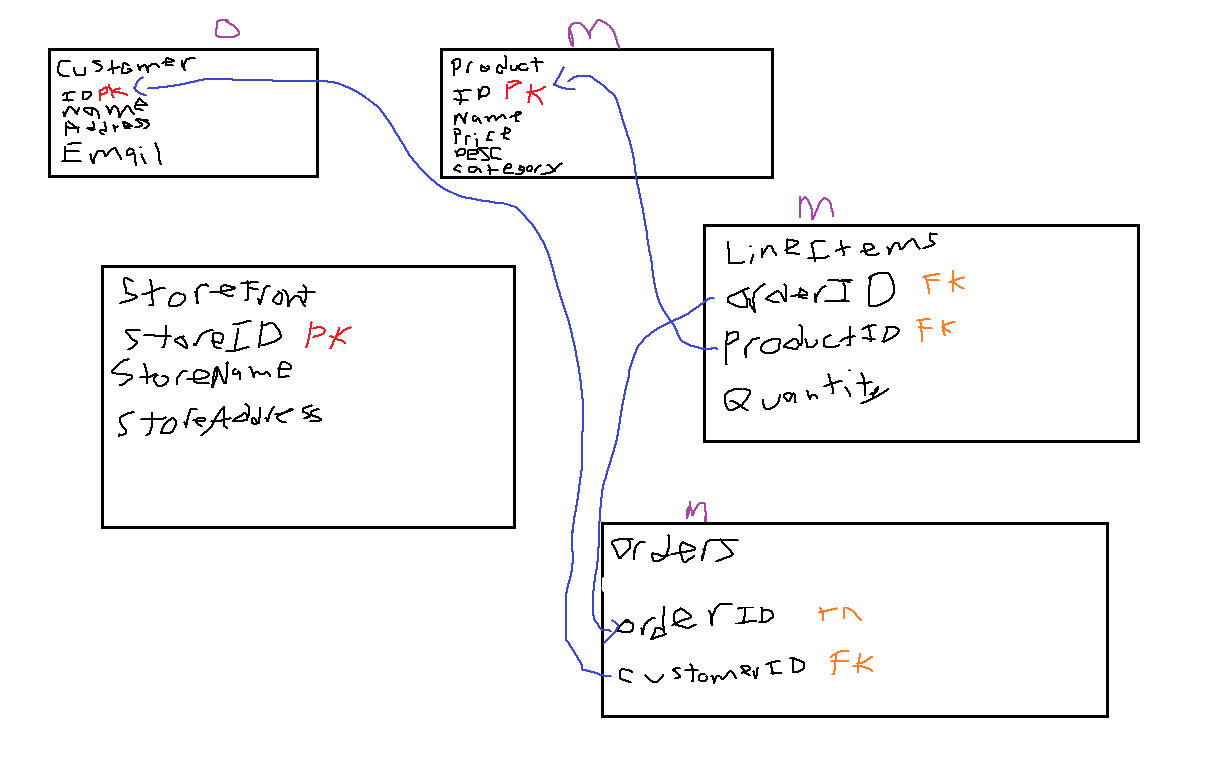 O
Customer
ID PK
Name
Address
Email
M
Product
ID PK
Name
Price
DESC
category
M
LineItems
orderID FK
ProductID FK
Quantity
StoreFront
StoreID PK
StoreName
StoreAddress
M
Orders
orderID
customerID FK